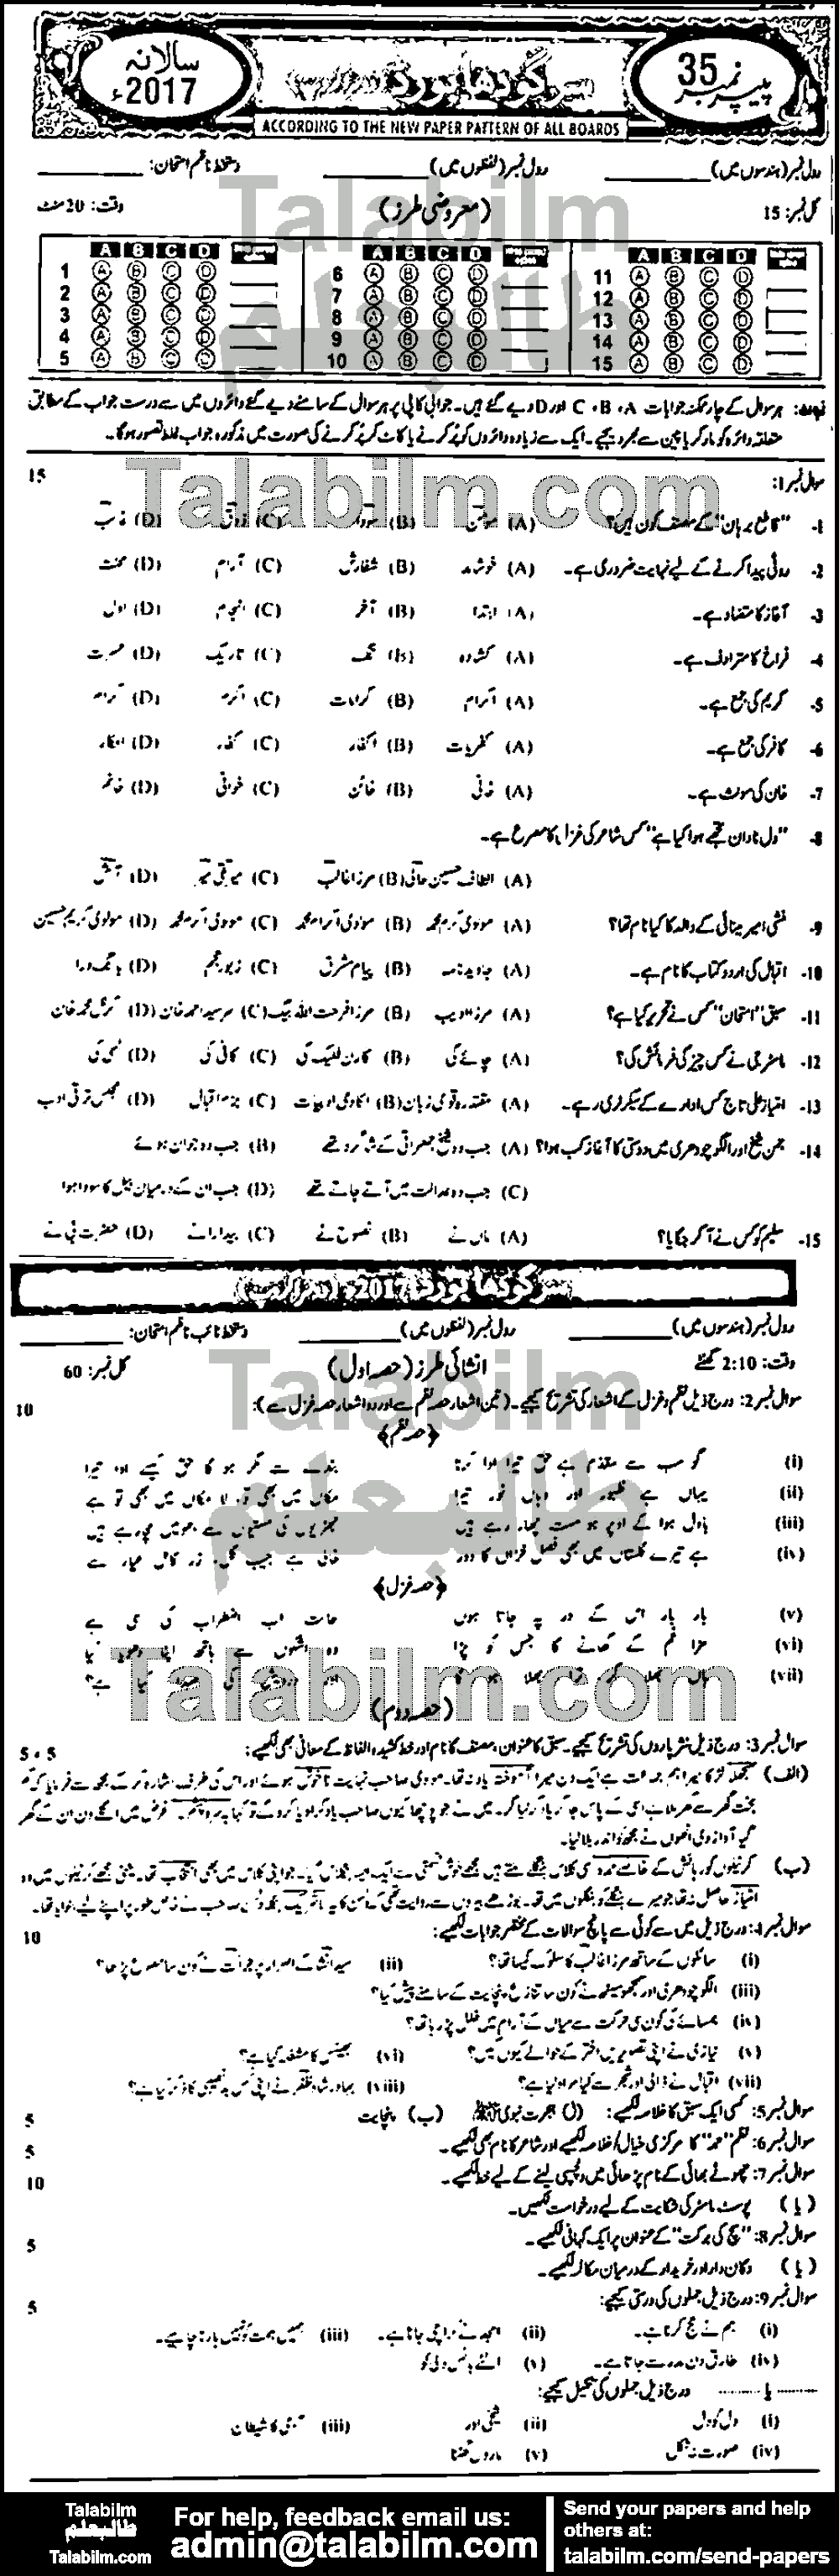 سالانہ 2017ء
سرگودھا بورڈ
پیپر نمبر 35
ACCORDING TO THE NEW PAPER PATTERN OF ALL BOARDS
رول نمبر (ہندسوں میں) رول نمبر (لفظوں میں) دستخط ناظم امتحان:
کل نمبر: 15 (معروضی طرز) وقت: 20 منٹ
A B C D A B C D A B C D
1 A B C D 6 A B C D 11 A B C D
2 A B C D 7 A B C D 12 A B C D
3 A B C D 8 A B C D 13 A B C D
4 A B C D 9 A B C D 14 A B C D
5 A B C D 10 A B C D 15 A B C D
نوٹ: ہر سوال کے چار ممکنہ جوابات C، B، A اور D دیے گئے ہیں۔ جوابی کاپی پر ہر سوال کے سامنے دیے گئے دائروں میں سے درست جواب کے مطابق
متعلقہ دائرہ کو مارکر یا پین سے بھر دیجیے۔ ایک سے زیادہ دائروں کو پُر کرنے یا کاٹ کر پُر کرنے کی صورت میں مذکورہ جواب غلط تصور ہوگا۔
سوال نمبر 1: 15
1- "قاطع برہان" کے مصنف کون ہیں؟ (A) مومن (B) سودا (C) ذوق (D) غالب
2- روٹی پیدا کرنے کے لیے نہایت ضروری ہے۔ (A) خوشامد (B) سفارش (C) آرام (D) محنت
3- آغاز کا متضاد ہے۔ (A) ابتدا (B) آخر (C) انجام (D) اول
4- فراخ کا مترادف ہے۔ (A) کشادہ (B) تنگ (C) تاریک (D)
5- کریم کی جمع ہے۔ (A) اکرام (B) کرامات (C) اکرم (D) کرام
6- کافر کی جمع ہے۔ (A) کفریات (B) اکفار (C) کفار (D)
7- خان کی مونث ہے۔ (A) خانی (B) خائن (C) خواتی (D) خانم
8- "دل ناداں تجھے ہوا کیا ہے" کس شاعر کی غزل کا مصرع ہے۔
(A) الطاف حسین حالی (B) مرزا غالب (C) میر تقی میر (D) آتش
9- منشی امیر مینائی کے والد کا کیا نام تھا؟ (A) مولوی کرم محمد (B) مولوی اکرام محمد (C) مولوی اکرم محمد (D) مولوی کریم حسین
10- اقبال کی اردو کتاب کا نام ہے۔ (A) جاوید نامہ (B) پیام مشرق (C) زبور عجم (D) بانگ درا
11- سبق "امتحان" کس نے تحریر کیا ہے؟ (A) مرزا ادیب (B) مرزا فرحت اللہ بیگ (C) سرسید احمد خان (D) کرنل محمد خان
12- ماسٹر جی نے کس چیز کی فرمائش کی؟ (A) چائے کی (B) کارن فلیک کی (C) کافی کی (D) لسی کی
13- امتیاز علی تاج کس ادارے کے سیکرٹری رہے۔ (A) مقتدرہ قومی زبان (B) اکادمی ادبیات (C) بزم اقبال (D) مجلس ترقی ادب
14- جمن شیخ اور الگو چودھری میں دوستی کا آغاز کب ہوا؟ (A) جب وہ شیخ جمعراتی کے شاگرد تھے (B) جب وہ جوان ہوئے
(C) جب وہ عدالت میں آتے جاتے تھے (D) جب ان کے درمیان بیل کا سودا ہوا
15- سلیم کو کس نے آ کر جگایا؟ (A) ماں نے (B) نصوح نے (C) بیدارا نے (D) حضرت بی نے
سرگودھا بورڈ 2017ء
رول نمبر (ہندسوں میں) رول نمبر (لفظوں میں) دستخط نائب ناظم امتحان:
وقت: 2:10 گھنٹے انشائی طرز (حصہ اول) کل نمبر: 60
سوال نمبر 2: درج ذیل نظم و غزل کے اشعار کی تشریح کیجیے۔ (تین اشعار حصہ نظم سے اور دو اشعار حصہ غزل سے): 10
﴿حصہ نظم﴾
(i) گو سب سے مقدم ہے حق تیرا ادا کرنا بندے سے مگر ہو گا حق کیسے ادا تیرا
(ii) یہاں ہے ظہور اور وہاں نور تیرا مکاں میں بھی تو، لا مکاں میں بھی تو ہے
(iii) بادل ہوا کے اوپر ہو مست چھا رہے ہیں جھڑیوں کی مستیوں سے دھومیں مچا رہے ہیں
(iv) ہے تیرے گلستاں میں بھی فصل خزاں کا دور خالی ہے جیب گل، زر کامل عیار سے
﴿حصہ غزل﴾
(v) بار بار اس کے در پہ جاتا ہوں حالت اب اضطراب کی سی ہے
(vi) مزا غم کے کھانے کا جس کو پڑا وہ اشکوں سے ہاتھ اپنا دھویا کیا
(vii) ہاں بھلا کر ترا بھلا ہو گا اور درویش کی صدا کیا ہے؟
(حصہ دوم)
سوال نمبر 3: درج ذیل نثر پاروں کی تشریح کیجیے۔ سبق کا عنوان، مصنف کا نام اور خط کشیدہ الفاظ کے معانی بھی لکھیے: 5+5
(الف) منجھلا لڑکا میرا ہم جماعت ہے ایک دن میرا آموختہ یاد نہ تھا۔ مولوی صاحب نہایت ناخوش ہوئے اور اس کی طرف اشارہ کر کے مجھ سے فرمایا کہ کم
بخت گھر سے گھر ملا ہے اسی کے پاس جا کر یاد کر لیا کر۔ میں نے جو پوچھا کیوں صاحب یاد کرا دیا کرو گے تو کہا بسر و چشم۔ غرض میں اگلے دن ان کے گھر
گیا آواز دی انھوں نے مجھ کو اندر بلا لیا۔
(ب) کرنیلوں کو رہائش کے خاصے عمدہ سی کلاس بنگلے ملتے ہیں مجھے خوش قسمتی سے ایک بنگلہ مل گیا۔ جو اپنی کلاس میں بھی انتخاب تھا۔ یعنی مجھے کرنیلوں میں وہ
امتیاز حاصل نہ تھا جو میرے بنگلے کو بنگلوں میں تھا۔
سوال نمبر 4: درج ذیل میں سے کوئی سے پانچ سوالات کے مختصر جوابات لکھیے: 10
(i) سائلوں کے ساتھ مرزا غالب کا سلوک کیسا تھا؟ (ii) سید انشا کے اصرار پر جرات نے کون سا مصرع پڑھا؟
(iii) الگو چودھری اور سمجھو سیٹھ نے کون سا تنازع پنچایت کے سامنے پیش کیا؟
(iv) ہمسائے کی کون سی حرکت سے میاں کے آرام میں خلل پڑ رہا تھا؟
(v) نیازی نے اپنی تصویریں اختر کے حوالے کیوں کیں؟ (vi) بھینس کا مشغلہ کیا ہے؟
(vii) اقبال نے ڈالی اور شجر سے کیا مراد لیا ہے؟ (viii) بہادر شاہ ظفر نے اپنی کس بد نصیبی کا ذکر کیا ہے؟
سوال نمبر 5: کسی ایک سبق کا خلاصہ لکھیے: (ا) ہجرت نبوی ﷺ (ب) پنچایت 5
سوال نمبر 6: نظم "حمد" کا مرکزی خیال/خلاصہ لکھیے اور شاعر کا نام بھی لکھیے۔ 5
سوال نمبر 7: چھوٹے بھائی کے نام پڑھائی میں دلچسپی لینے کے لیے خط لکھیے۔ 10
(یا) پوسٹ ماسٹر کی شکایت کے لیے درخواست لکھیں۔
سوال نمبر 8: "سچ کی برکت" کے عنوان پر ایک کہانی لکھیے۔ 5
(یا) دکان دار اور خریدار کے درمیان مکالمہ لکھیے۔
سوال نمبر 9: درج ذیل جملوں کی درستی کیجیے: 5
(i) ہم نے حج کرنا ہے۔ (ii) امجد نے کراچی جانا ہے۔ (iii) ہمیں ہمت کو نہیں ہارنا چاہیے۔
(iv) طارق دن مدرسے جاتا ہے۔ (v) الٹے بانس دلی کو
یا درج ذیل جملوں کی تکمیل کیجیے:
(i) دل کو دل (ii) نیکی اور (iii) آدمی کا شیطان
(iv) صورت نہ شکل (v) ماروں گھٹنا
Talabilm
طالبعلم
Talabilm.com
For help, feedback email us:
admin@talabilm.com
Send your papers and help
others at:
talabilm.com/send-papers